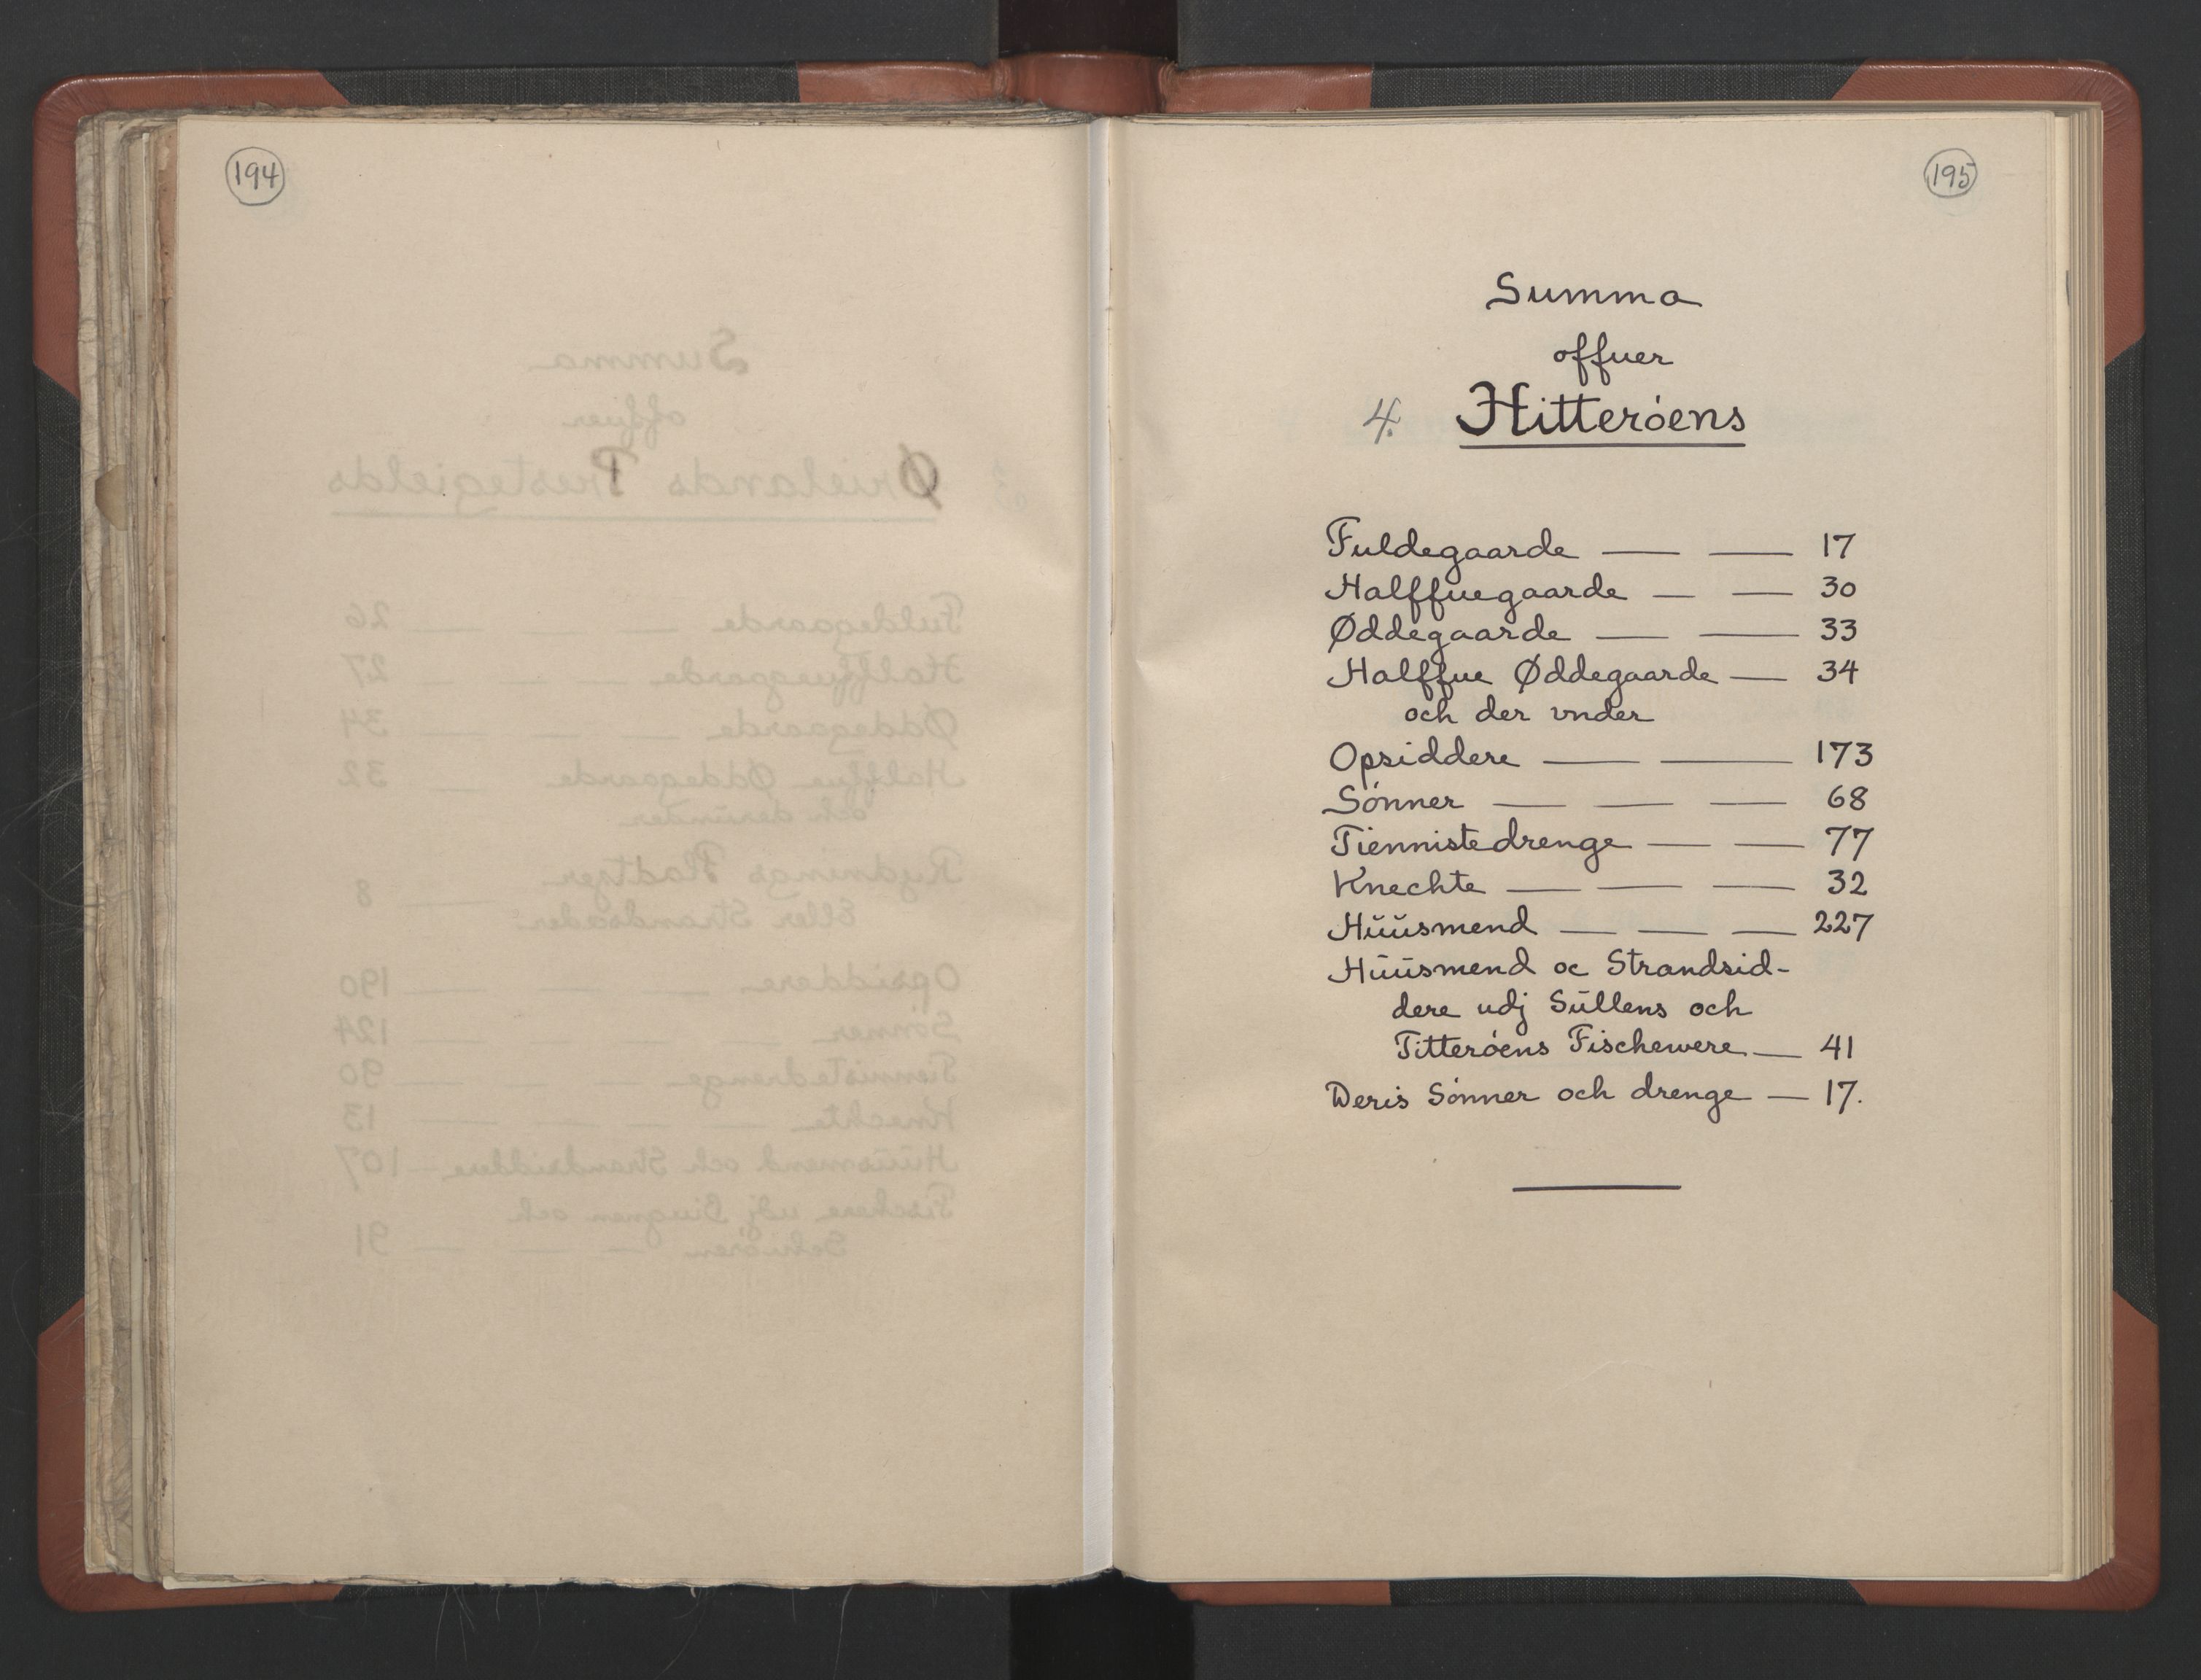 194
195
Summa
offuer
4. Hitteröens
Fuldegaarde — — 17
Halffuegaarde — — 30
Øddegaarde — — 33
Halffue Øddegaarde — 34
och der vnder
Opsiddere — — 173
Sönner — — — 68
Tiennistedrenge — — 77
Knechte — — — 32
Hŭŭsmend — — — 227
Hŭŭsmend oc Strandsid-
dere udj Sŭllens och
Titteröens Fischewere — 41
Deris Sönner och drenge — 17.